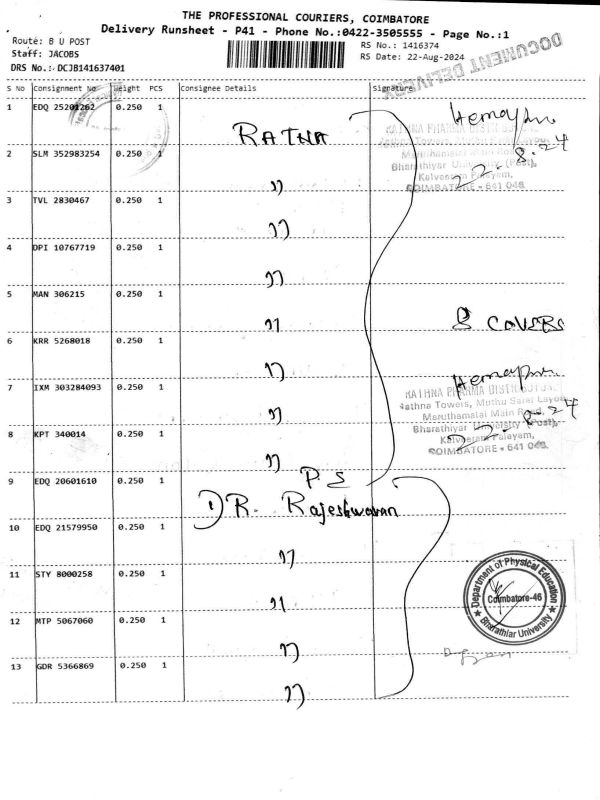 THE PROFESSIONAL COURIERS, COIMBATORE
Delivery Runsheet - P41 - Phone No.:0422-3505555 - Page No.:1
Route: B U POST
Staff: JACOBS
DRS No.: DCJB141637401
RS No.: 1416374
RS Date: 22-Aug-2024
DOCUMENT DELIVERY
S No Consignment No Weight PCS Consignee Details Signature
1 EDQ 25201262 0.250 1 RATNA
2 SLM 352983254 0.250 1 "
3 TVL 2830467 0.250 1 "
4 DPI 10767719 0.250 1 "
5 MAN 306215 0.250 1 "
6 KRR 5268018 0.250 1 "
7 IXM 303284093 0.250 1 "
8 KPT 340014 0.250 1 "
9 EDQ 20601610 0.250 1 DR. P.S Rajeshwaran
10 EDQ 21579950 0.250 1 "
11 STY 8000258 0.250 1 "
12 MTP 5067060 0.250 1 "
13 GDR 5366869 0.250 1 "
22.8.24
Bharathiyar University (Post),
Kalveeram Palayam,
COIMBATORE - 641 046
8 COVERS
RATHNA PHARMA DISTRIBUTOR
Rathna Towers, Muthu Sarai Layout
Maruthamalai Main Road,
Bharathiyar University (Post),
Kalveeram Palayam,
COIMBATORE - 641 046
22.8.24
Department of Physical Education
Coimbatore-46
Bharathiar University